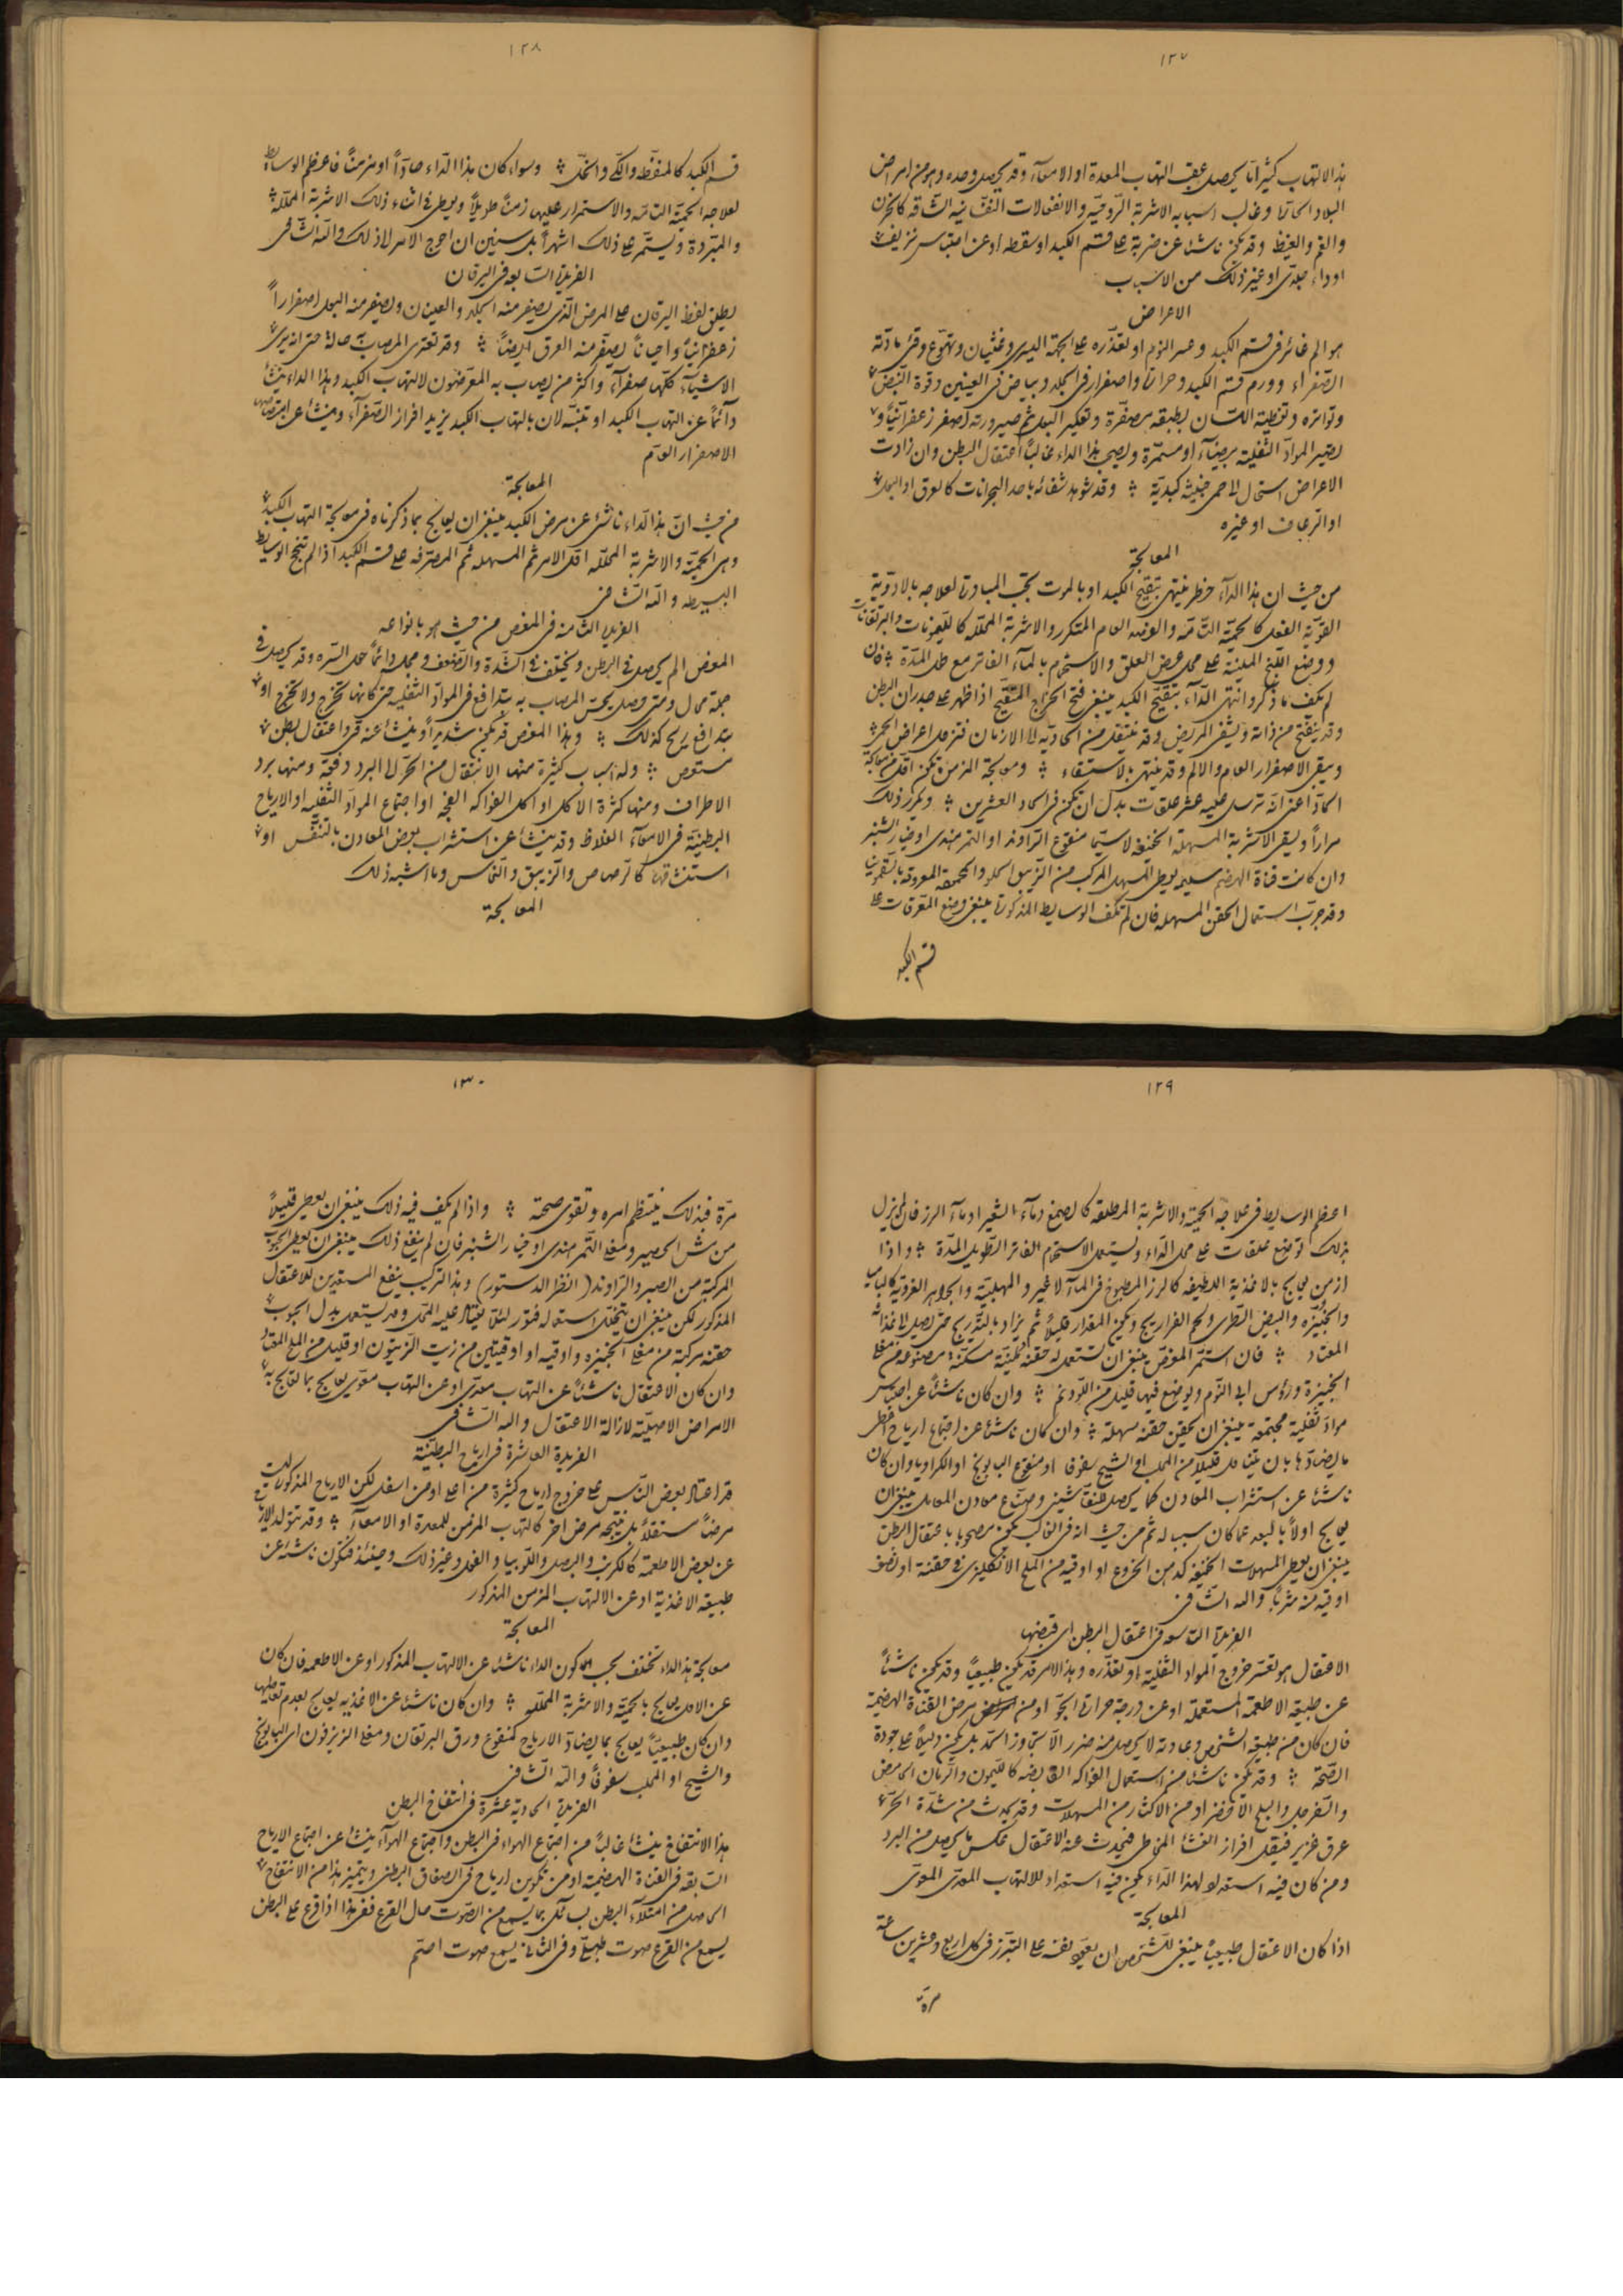 ١٢٧
هذا الالتهاب كثيرا ما يحصل عقب التهاب المعدة او الامعآء وقد يحصل وحده وهو من امراض
البلاد الحارة وغالب اسبابه الاشربة الروحية والانفعالات النفسانية الشاقة كالحزن
والغم والغيظ وقد يكون ناشئا عن ضربة على قسم الكبد او سقطة او عن احتباس نزيف
او داء جلدى او غير ذلك من الاسباب
الاعراض
هو الم غائر فى قسم الكبد وعسر النوم او تعذره على الجهة اليسرى وغثيان وتهوع وقئ مادته
الصفراء وورم قسم الكبد وحرارة واصفرار فى الجلد وبياض فى العينين وقوة النبض
وتواتره وتغطية اللسان بطبقة مصفرة وتعكير البول ثم صيرورته اصفر زعفرانيا و
تصير المواد الثفلية بيضآء او مسمرة ويصحب هذا الداء غالبا اعتقال البطن وان زادت
الاعراض استحال الى حمى خبيثة كبدية ؞ وقد شوهد شفائه باحد البحرانات كالعرق او البول
او الرعاف او غيره
المعالجة
من حيث ان هذا الدآء خطر ينتهى بتقيح الكبد او بالموت يجب المبادرة لعلاجه بالادوية
القوية الفعل كالحمية التامة والفصد العام المتكرر والاشربة المحللة كالليمونات والبرتقانات
ووضع اللبخ الملينة على محل عض العلق والاستحمام بالمآء الفاتر مع طول المدة ؞ فان
لم يكف ما ذكر وانتهى الدآء بتقيح الكبد ينبغى فتح الخراج المتقيح اذا ظهر على جدران البطن
وقد ينفتح من ذاته ويشفى المريض وقد ينتقل من الحادية الى الازمان فتزول اعراض الحمى
ويبقى الاصفرار العام والالم وقد ينتهى بالاستسقاء ؞ ومعالجة المزمن تكون اقل من معالجة
الحاد اعنى انه ترسل عليه عشر علقات بدل ان تكون فى الحاد العشرين ؞ ويكرر ذلك
مرارا ويسقى الاشربة المسهلة الخفيفة لاسيما منقوع الراوند او التمر هندى او خيار شنبر
وان كانت قناة الهضم سليمة يعطى المسهل المركب من الزيبق الحلو والمحموده المعروفة بالسقمونيا
وقد جرب استعمال الحقن المسهلة فان لم تكف الوسايط المذكورة ينبغى وضع المصرفات على
قسم الكبد
١٢٨
قسم الكبد كالمنفطة والكى والخل ؞ وسواء كان هذا الداء حادا او مزمنا فاعظم الوسائط
لعلاجه الحمية التامة والاستمرار عليها زمنا طويلا ويعطى فى اثناء ذلك الاشربة المحللة
والمبردة ويستمر على ذلك اشهرا بل سنين ان احوج الامر لذلك والله الشافى
الفريدة السابعة فى اليرقان
يطلق لفظ اليرقان على المرض الذى يصفر منه الجلد والعينان ويصفر منه البول اصفرارا
زعفرانيا واحيانا يصفر منه العرق ايضا ؞ وقد تعترى المصاب به حالة حتى انه يرى
الاشيآء كلها صفرآء واكثر من يصاب به المعرضون لالتهاب الكبد وهذا الداء ينشأ
دآئما عن التهاب الكبد او تنبه لان بالتهاب الكبد يزيد افراز الصفرآء وينشأ عن امتصاصها
الاصفرار العام
المعالجة
من حيث ان هذا الدآء ناشئ عن مرض الكبد ينبغى ان يعالج بما ذكرناه فى معالجة التهاب الكبد
وهى الحمية والاشربة المحللة اول الامر ثم المسهلة ثم المصرفة على قسم الكبد اذا لم تنجح الوسايط
البسيطة والله الشافى
الفريدة الثامنة فى المغص من حيث هو بانواعه
المغص الم يحصل فى البطن ويختلف فى الشدة والضعف ومحله دائما حول السره وقد يحصل فى
جملة محال ومتى حصل يحس المصاب به بتدافع فى المواد الثفلية حتى كانها تخرج ولا تخرج او
بتدافع ريح كذلك ؞ وهذا المغص قد يكون شديدا وينشأ عنه قئ واعتقال بطن
مستعص ؞ وله اسباب كثيرة منها الانتقال من الحر الى البرد دفعة ومنها برد
الاطراف ومنها كثرة الاكل او اكل الفواكه الفجة او اجتماع المواد الثفلية او الارياح
البطنية فى الامعآء الغلاظ وقد ينشأ عن استشراب بعض المعادن بالتنفس او
استنشاقها كالرصاص والزيبق والنحاس وما اشبه ذلك
المعالجة
١٢٩
اعظم الوسايط فى علاجه الحمية والاشربة المرطبة كالصمغ ومآء الشعير او مآء الرز فان لم يزل
بذلك توضع علقات على محل الدآء ويستعمل الاستحمام الفاتر الطويل المدة ؞ واذا
ازمن يعالج بالاغذية اللطيفة كالرز المطبوخ فى المآء لا غير والمهلبية والجواهر الغروية كالباميا
والخبيزه والبيض الطرى ولحم الفراريج ويكون المقدار قليلا ثم يزاد بالتدريج حتى يصل الى غذائه
المعتاد ؞ فان استمر المغص ينبغى ان تستعمل له حقنة ملينة مسكنة مصنوعة من مغلى
الخبيزة ورؤس ابى النوم ويوضع فيها قليل من اللودنم ؞ وان كان ناشئا عن احتباس
مواد ثفلية مجتمعة ينبغى ان يحقن حقنة مسهلة ؞ وان كان ناشئا عن اجتماع ارياح اعطى
ما يضادها بان يتناول قليلا من المحلب او الشيح سفوفا او منقوع البابونج او الكراويا وان كان
ناشئا عن استشراب المعادن كما يحصل للنقاشين وصناع معادن المعامل ينبغى ان
يعالج اولا بالبعد عما كان سببا له ثم من حيث انه فى الغالب يكون مصحوبا باعتقال البطن
ينبغى ان يعطى المسهلات الخفيفة كدهن الخروع او اوقية من الملح الانكليزى فى حقنة او نصف
اوقية منه شربا والله الشافى
الفريدة التاسعة فى اعتقال البطن اى قبضها
الاعتقال هو تعسر خروج المواد الثفلية او تعذره وهذا الامر قد يكون طبيعيا وقد يكون ناشئا
عن طبيعة الاطعمة المستعملة او عن درجة حرارة الجو او من مرض القناة الهضمية
فان كان من طبيعة الشخص وعادته لا يحصل منه ضرر الا بتجاوز الحد بل يكون دليلا على جودة
الصحة ؞ وقد يكون ناشئا من استعمال الفواكه القابضة كالليمون والرمان الحامض
والسفرجل والبلح الاخضر او من الاكثار من المسهلات وقد يحدث من شدة الحر
عرق غزير فيقل افراز الغشا المخاطى فيحدث عنه الاعتقال عكس ما يحصل من البرد
ومن كان فيه استعداد لهذا الدآء يكون فيه استعداد للالتهاب المعدى المعوى
المعالجة
اذا كان الاعتقال طبيعيا ينبغى للشخص ان يعود نفسه على التبرز فى كل اربع وعشرين ساعة
مرة
١٣٠
مرة فبذلك ينتظم امره وتقوى صحته ؞ واذا لم يكف فيه ذلك ينبغى ان يعطى قليلا
من الحصير ومغلى التمر هندى او خيار الشنبر فان لم ينفع ذلك ينبغى ان يعطى الحبوب
المركبة من الصبر والراوند (انظر الدستور) وهذا التركيب ينفع المستعدين للاعتقال
المذكور لكن ينبغى ان يتخلل استعماله فتور لئلا يعتاد عليه المحل وقد يستعمل بدل الحبوب
حقنة مركبة من مغلى الخبيزه واوقيه او اوقيتين من زيت الزيتون او قليل من الملح المعتاد
وان كان الاعتقال ناشئا عن التهاب معدى او عن التهاب معوى يعالج بما تعالج به
الامراض الاصلية لازالة الاعتقال والله الشافى
الفريدة العاشرة فى ارياح البطنية
قد اعتاد بعض الناس على خروج ارياح كثيرة من اعلى او من اسفل لكن الارياح المذكورة ليست
مرضا مستقلا بل نتيجه مرض اخر كالتهاب المزمن للمعدة او الامعآء ؞ وقد تتولد الارياح
عن بعض الاطعمة كالكرنب والبصل واللوبيا والفول وغير ذلك وحينئذ فتكون ناشئة عن
طبيعة الاغذية او عن الالتهاب المزمن المذكور
المعالجة
معالجة هذا الداء تختلف بحسب كون الداء ناشئا عن الالتهاب المذكور او عن الاطعمة فان كان
عن الاول يعالج بالحمية والاشربة المحللة ؞ وان كان ناشئا عن الاغذيه يعالج بعدم تعاطيها
وان كان طبيعيا يعالج بما يضاد الارياح كمنقوع ورق البرتقان ومغلى الزيزفون اى البابونج
والشيح او المحلب سفوفا والله الشافى
الفريدة الحادية عشرة فى انتفاخ البطن
هذا الانتفاخ ينشأ غالبا من اجتماع الهواء فى البطن واجتماع الهوآء ينشأ عن اجتماع الارياح
السابقة فى القناة الهضمية او من تكوين ارياح فى الصفاق البطنى ويتميز هذا من الانتفاخ
الحاصل من امتلآء البطن بسائل بما يسمع من الصوت حال القرع ففى هذا اذا قرع على البطن
يسمع من القرع صوت طبلى وفى الثانى يسمع صوت اصم